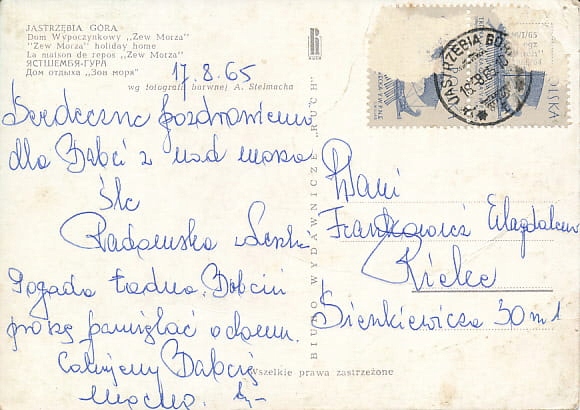 JASTRZĘBIA GÓRA
Dom Wypoczynkowy „Zew Morza"
"Zew Morza" holiday home
La maison de repos „Zew Morza"
ЯСТШЕМБЯ-ГУРА
Дом отдыха „Зов моря"
wg fotografii barwnej A. Stelmacha
17.8.65
Serdeczne pozdrowienia
dla Babci z nad morza
śle
Radomska
Pogoda ładna. Babciu
proszę pamiętać o domu.
Całujemy Babcię
mocno.
BIURO WYDAWNICZE „RUCH"
RUCH
JASTRZĘBIA GÓRA
POLKA
Pani
Frankowicz Magdalena
Kielce
Sienkiewicza 30 m 1
Wszelkie prawa zastrzeżone